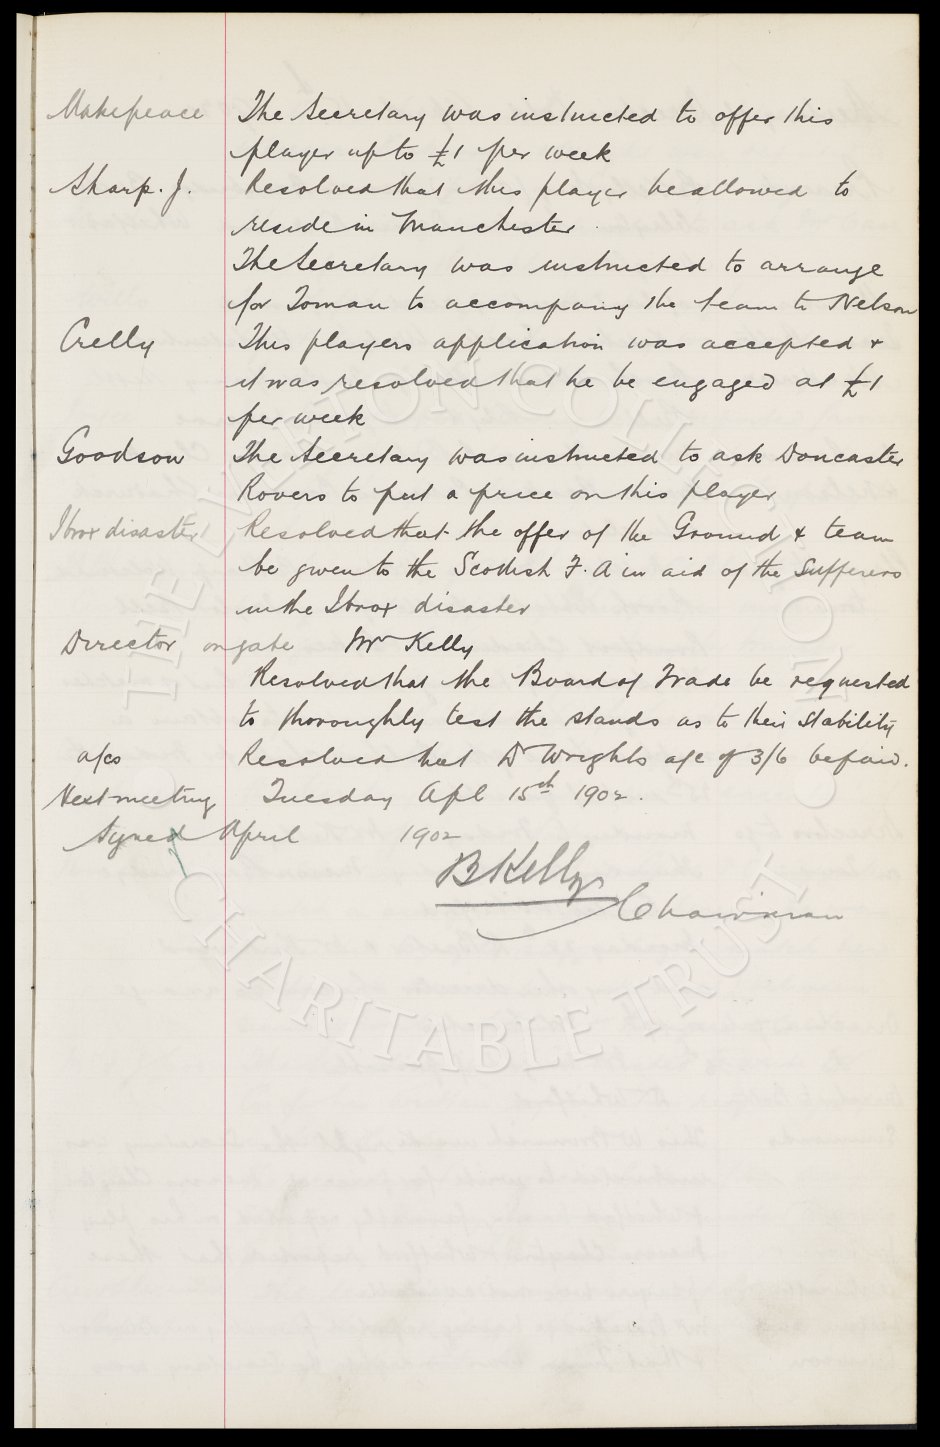 Makepeace The Secretary was instructed to offer this
player up to £1 per week
Sharp. J. Resolved that this player be allowed to
reside in Manchester
The Secretary was instructed to arrange
for Toman to accompany the team to Nelson
Crelly This players application was accepted +
it was resolved that he be engaged at £1
per week
Goodson The Secretary was instructed to ask Doncaster
Rovers to put a price on this player
Ibrox disaster Resolved that the offer of the Ground + team
be given to the Scottish F. A in aid of the Sufferers
in the Ibrox disaster
Director on gate Mr Kelly
Resolved that the Board of Trade be requested
to thoroughly test the stands as to their stability
a/cs Resolved that Dr Wrights a/c of 3/6 be paid.
Next meeting Tuesday Apl 15th 1902.
Signed April 1902
B Kelly
Chairman
THE EVERTON COLLECTION
CHARITABLE TRUST